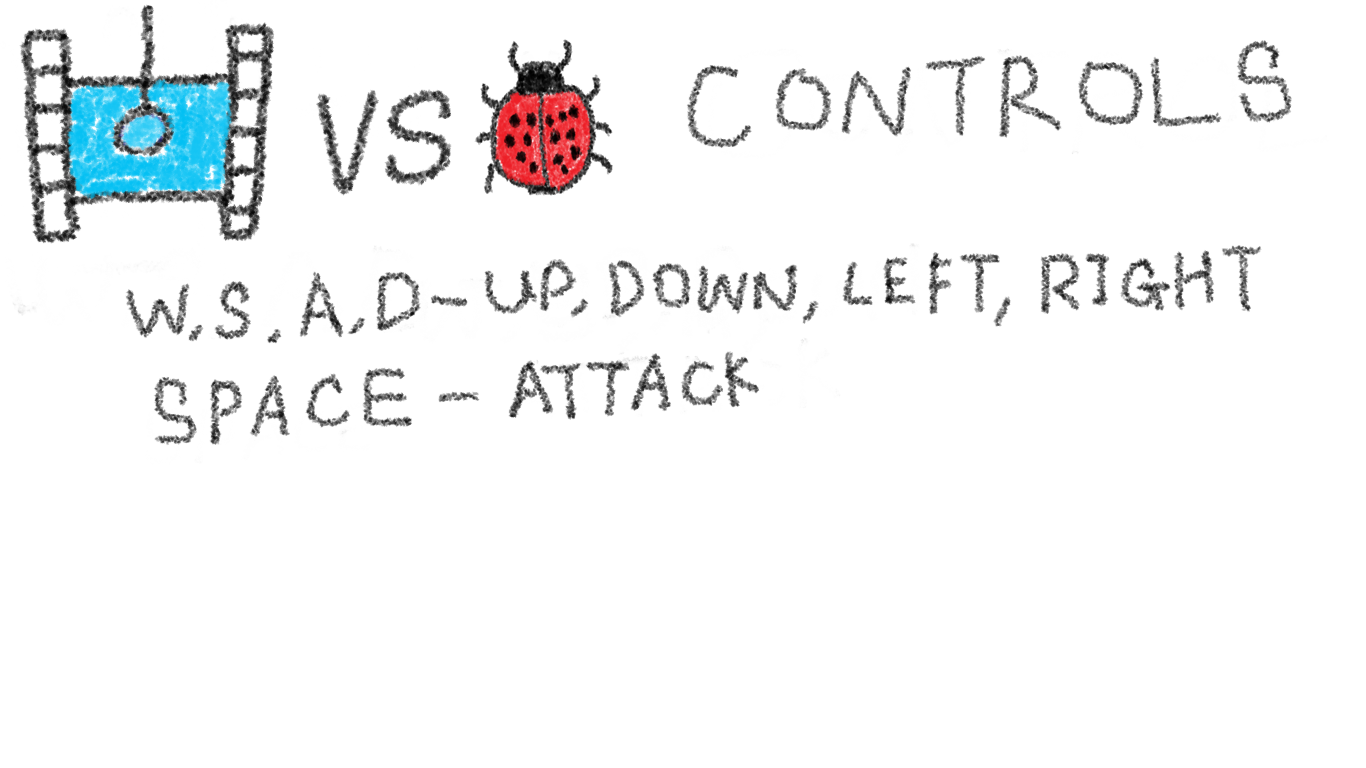 VS CONTROLS
W, S, A, D - UP, DOWN, LEFT, RIGHT
SPACE - ATTACK